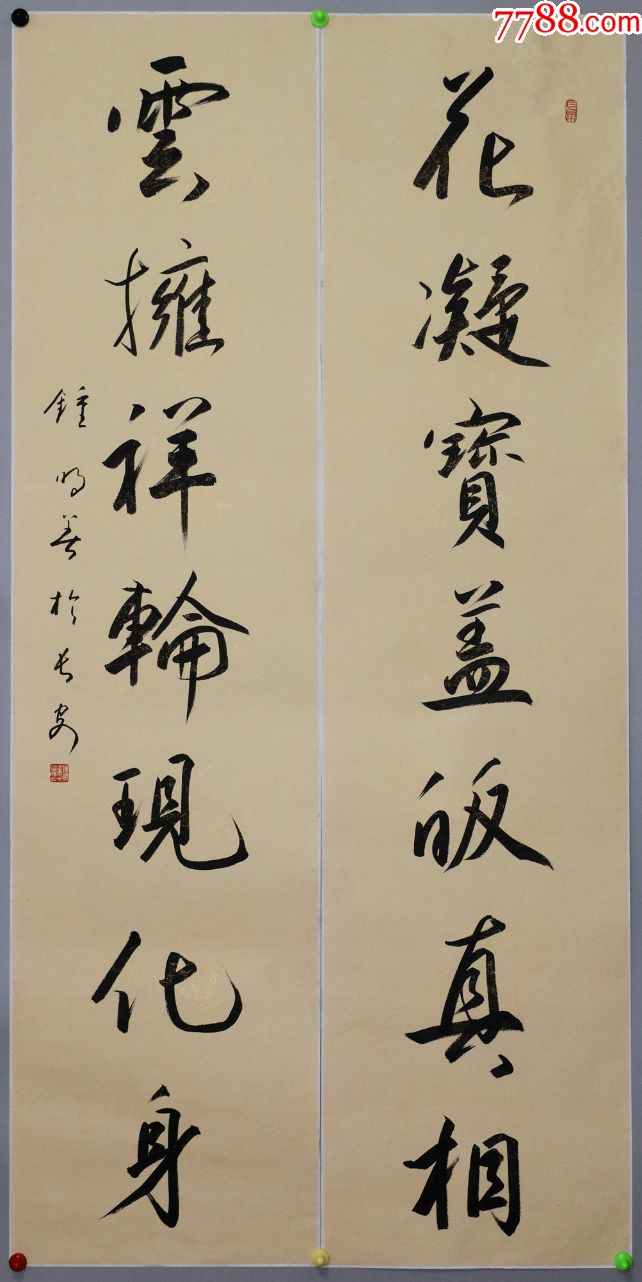 7788.com
花凝寶盖皈真相
雲擁祥輪現化身
鍾明善於長安